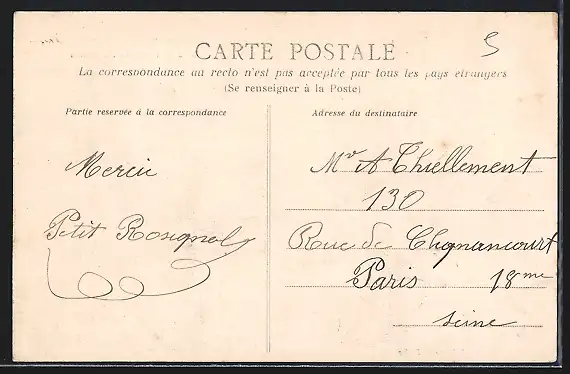 CARTE POSTALE
La correspondance au recto n'est pas acceptée par tous les pays étrangers
(Se renseigner à la Poste)
Partie reservée à la correspondance
Adresse du destinataire
5
Mercii
Petit Rosignol
Mr A Thiellement
130
Rue de Chgnancourt
Paris 18me
Seine